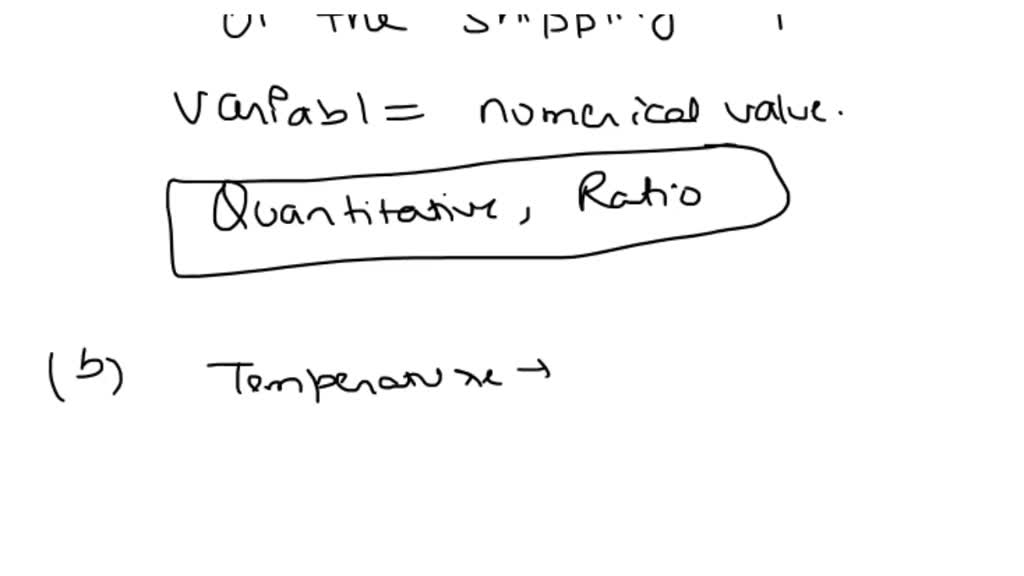 of the shipping
variabl = numerical value.
Quantitative, Ratio
(b) Temperature →